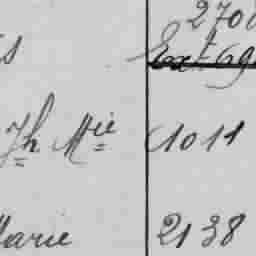 270
Ext 69
Jh Mie 1011
Marie 2138